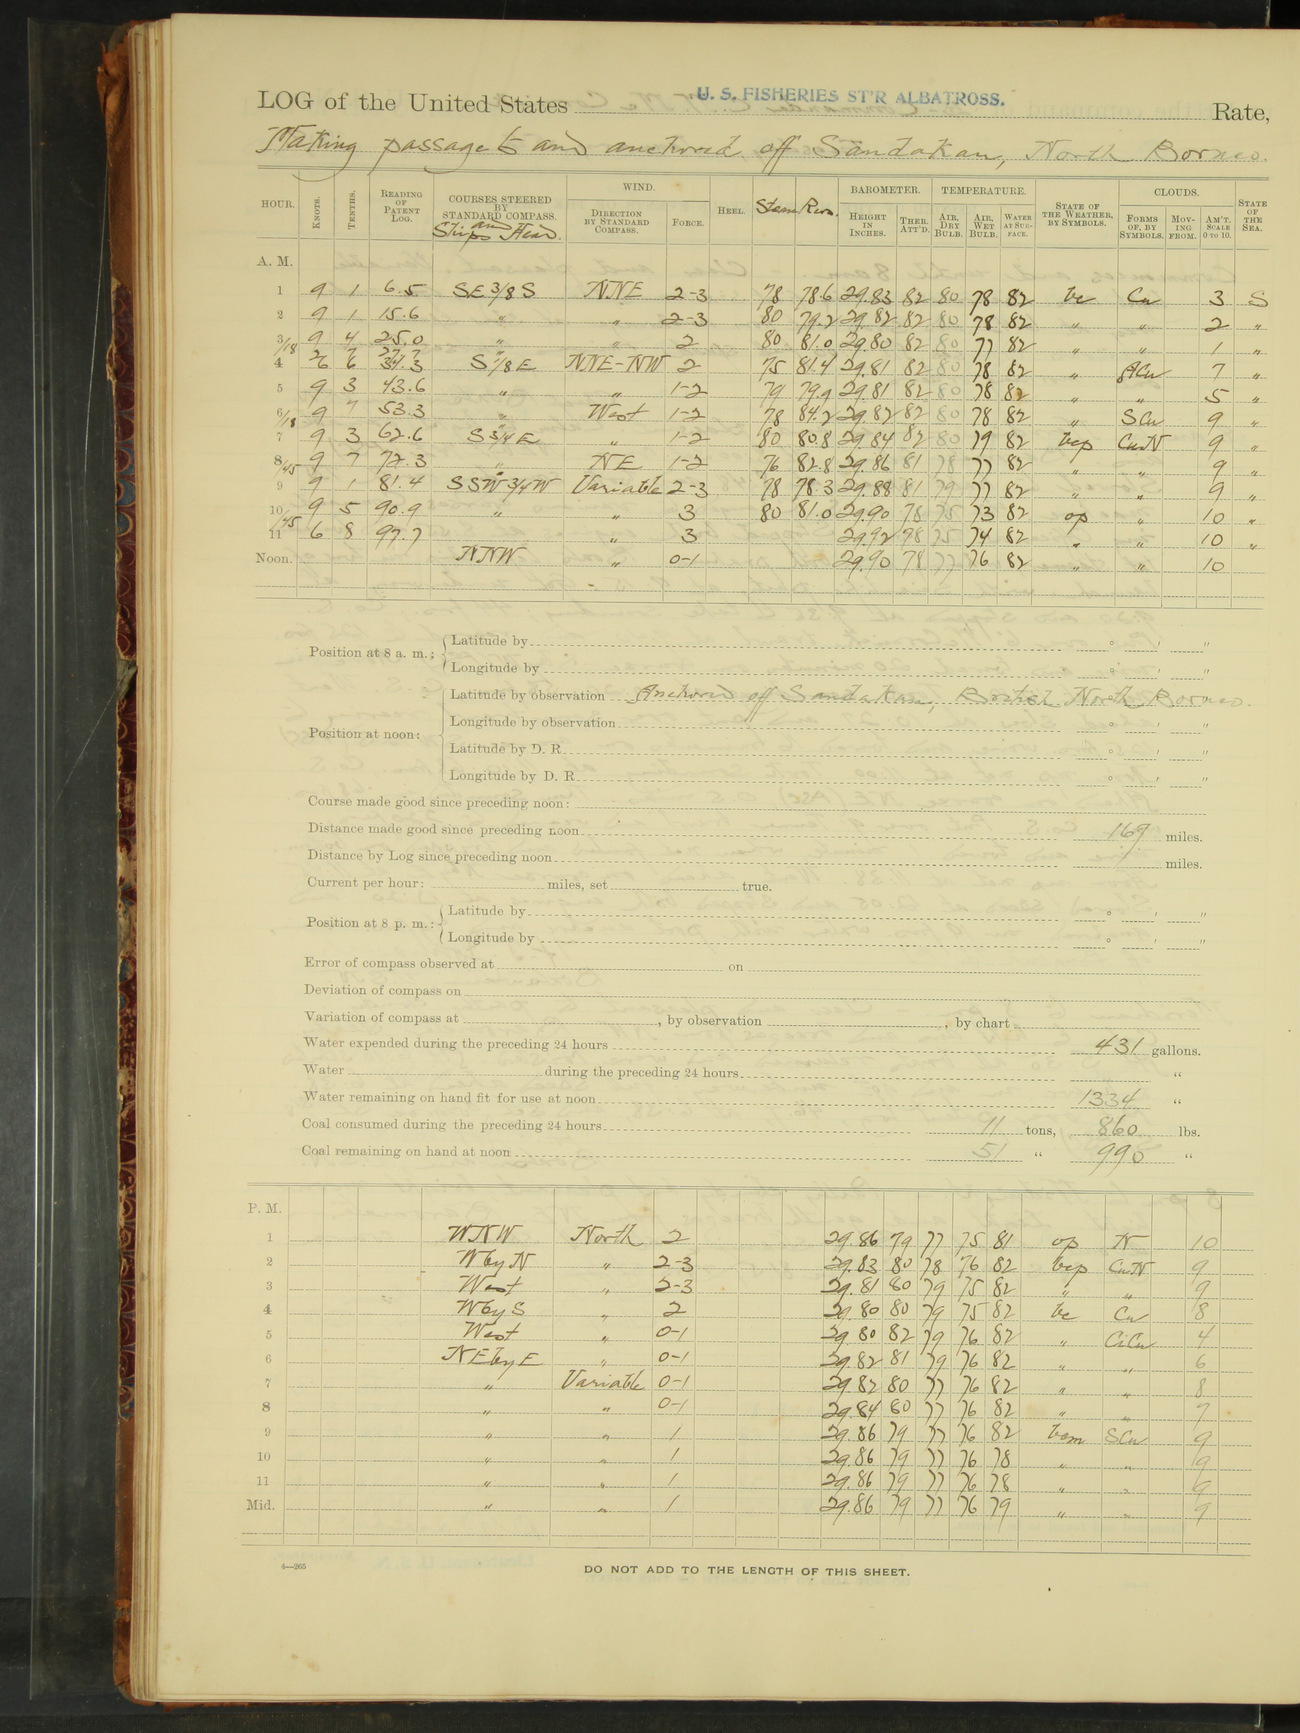 LOG of the United States U. S. FISHERIES ST'R ALBATROSS. Rate,
Making passage to and anchored off Sandakan, North Borneo.
HOUR. KNOTS. TENTHS. READING OF PATENT LOG. COURSES STEERED BY STANDARD COMPASS. and Ships Head. WIND. DIRECTION BY STANDARD COMPASS. FORCE. HEEL. Steam Revs. BAROMETER. HEIGHT IN INCHES. THER. ATT'D. TEMPERATURE. AIR, DRY BULB. AIR, WET BULB. WATER AT SURFACE. STATE OF THE WEATHER, BY SYMBOLS. CLOUDS. FORMS OF, BY SYMBOLS. MOVING FROM. AM'T. SCALE 0 TO 10. STATE OF THE SEA.
A. M.
1 9 1 6.5 SE 3/8 S NNE 2-3 78 78.6 29.83 82 80 78 82 bc Cu 3 S
2 9 1 15.6 " " 2-3 80 79.2 29.82 82 80 78 82 " " 2 "
3/18 9 4 25.0 " " 2 80 81.0 29.80 82 80 77 82 " " 1 "
4 6 6 34.3 S 1/8 E NNE-NW 2 75 81.4 29.81 82 80 78 82 " ACu 7 "
5 9 3 43.6 " " 1-2 79 79.9 29.81 82 80 78 82 " " 5 "
6/18 9 7 53.3 " West 1-2 78 84.2 29.82 82 80 78 82 " SCu 9 "
7 9 3 62.6 S 3/4 E " 1-2 80 80.8 29.84 82 80 79 82 bcp CuN 9 "
8/45 9 7 72.3 " NE 1-2 76 82.8 29.86 81 78 77 82 " " 9 "
9 9 1 81.4 SSW 3/4 W Variable 2-3 78 78.3 29.88 81 79 77 82 " " 9 "
10 9 5 90.9 " " 3 80 81.0 29.90 78 75 73 82 op " 10 "
11/45 6 8 97.7 " 3 29.92 78 75 74 82 " " 10 "
Noon. NNW " 0-1 29.90 78 77 76 82 " " 10
Position at 8 a. m.: Latitude by ° ' "
Longitude by ° ' "
Position at noon: Latitude by observation Anchored off Sandakan, British North Borneo.
Longitude by observation ° ' "
Latitude by D. R. ° ' "
Longitude by D. R. ° ' "
Course made good since preceding noon:
Distance made good since preceding noon 169 miles.
Distance by Log since preceding noon miles.
Current per hour: miles, set true.
Position at 8 p. m.: Latitude by ° ' "
Longitude by ° ' "
Error of compass observed at on
Deviation of compass on
Variation of compass at , by observation , by chart
Water expended during the preceding 24 hours 431 gallons.
Water during the preceding 24 hours "
Water remaining on hand fit for use at noon 1334 "
Coal consumed during the preceding 24 hours 11 tons, 860 lbs.
Coal remaining on hand at noon 51 " 990 "
P. M.
1 WNW North 2 29.86 79 77 75 81 op N 10
2 W by N " 2-3 29.83 80 78 76 82 bcp CuN 9
3 West " 2-3 29.81 80 79 75 82 " " 9
4 W by S " 2 29.80 80 79 75 82 bc Cu 8
5 West " 0-1 29.80 82 79 76 82 " CiCu 4
6 NE by E " 0-1 29.82 81 79 76 82 " " 6
7 " Variable 0-1 29.82 80 77 76 82 " " 8
8 " " 0-1 29.84 80 77 76 82 " " 7
9 " " 1 29.86 79 77 76 82 bcm SCu 9
10 " " 1 29.86 79 77 76 78 " " 9
11 " " 1 29.86 79 77 76 78 " " 9
Mid. " " 1 29.86 79 77 76 79 " " 9
4—265
DO NOT ADD TO THE LENGTH OF THIS SHEET.